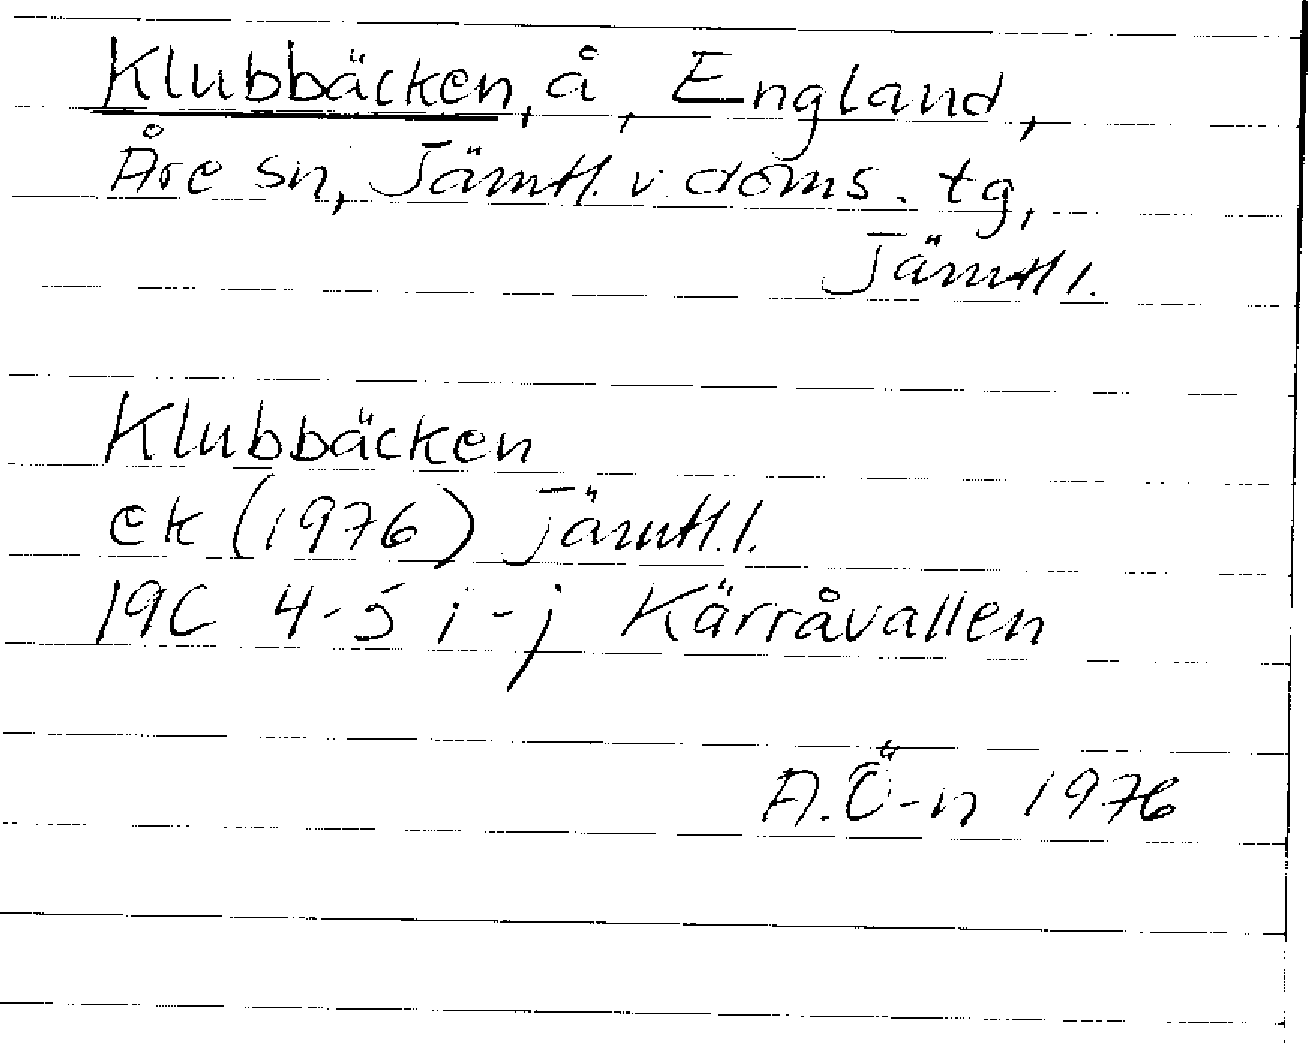 Klubbäcken, å, England,
Åre sn, Jämtl. v. doms. tg,
Jämtl l.
Klubbäcken
ek (1976) Jämtl. l.
19C 4-5 i-j Kärråvallen
A.Ö-n 1976